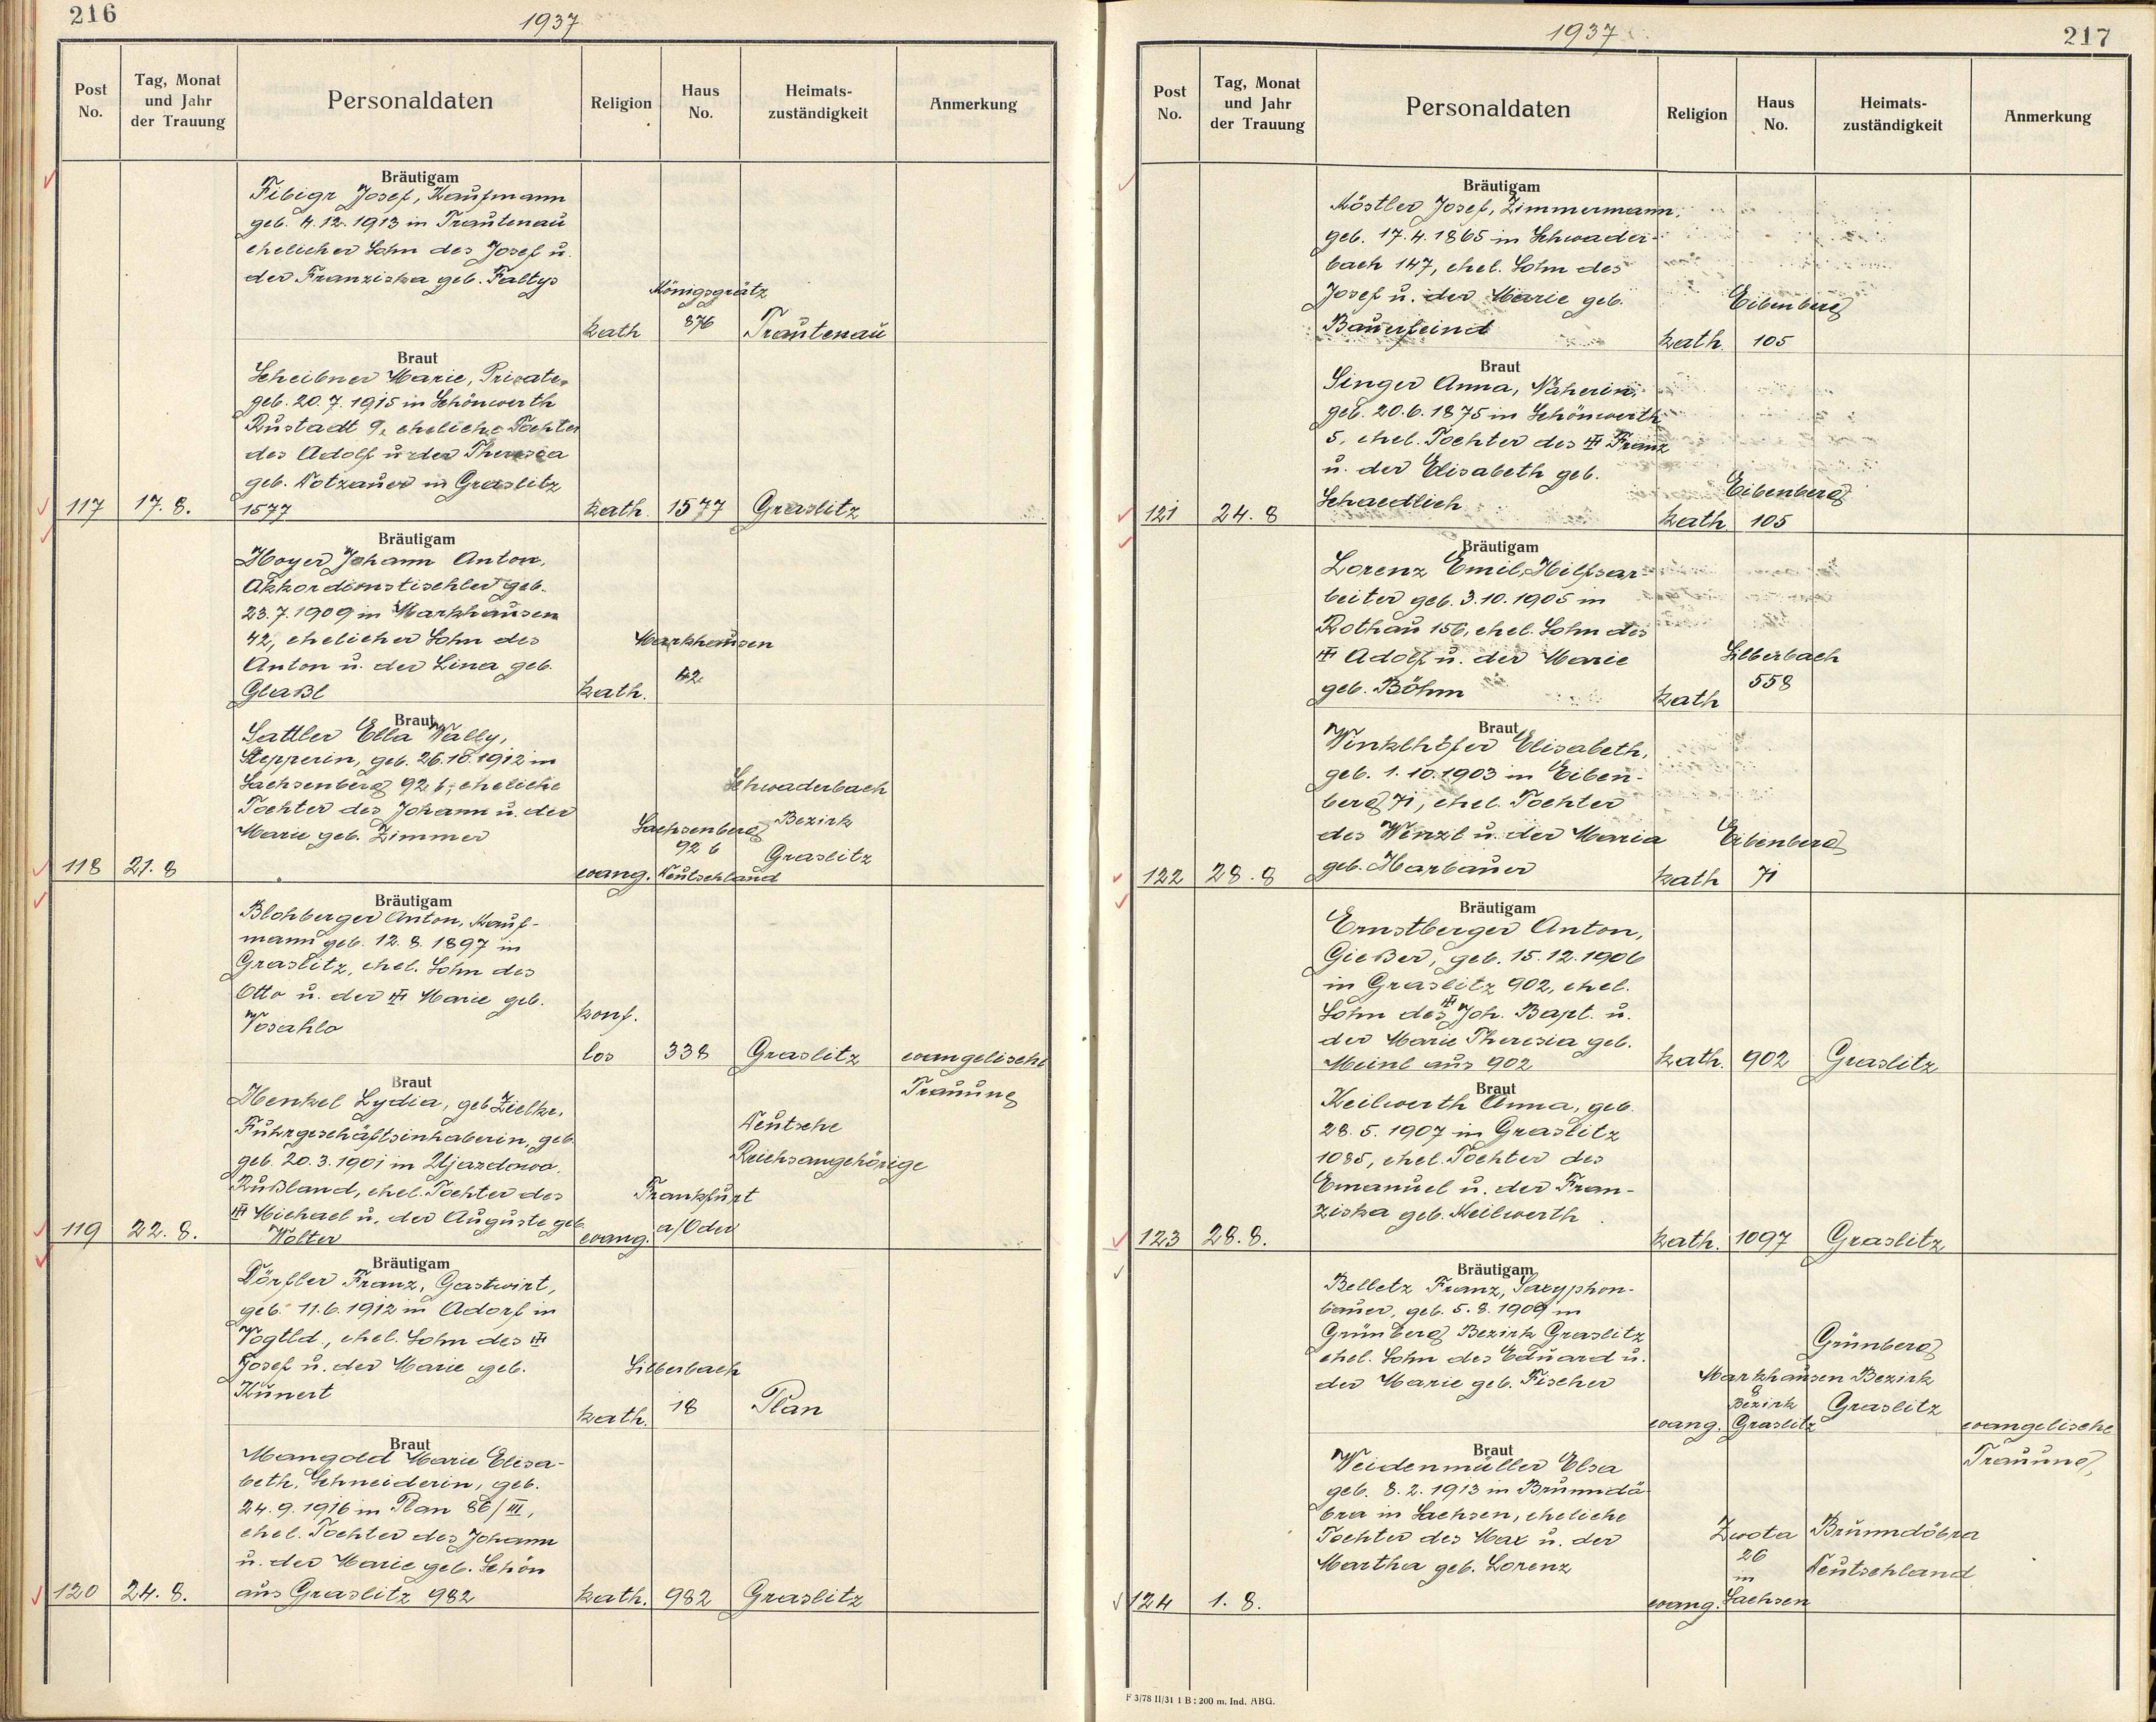 216
1937
Post No.
Tag, Monat und Jahr der Trauung
Personaldaten
Religion
Haus No.
Heimats-zuständigkeit
Anmerkung
Bräutigam
Fibigr Josef, Kaufmann
geb. 4.12.1913 in Trautenau
ehelicher Sohn des Josef u.
der Franziska geb. Faltys
Königsgrätz
kath 876 Trautenau
Braut
Scheibner Marie, Private,
geb. 20.7.1915 in Schönwerth
Rustadt 9, eheliche Tochter
des Adolf u. der Theresia
geb. Dotzauer in Graslitz
117 17.8. 1577 kath. 1577 Graslitz
Bräutigam
Hoyer Johann Anton,
Akkordionstischler geb.
23.7.1909 in Markhausen
42, ehelicher Sohn des
Markhausen
Anton u. der Lina geb.
Glaßl kath. 42
Braut
Sattler Ella Wally,
Stepperin, geb. 26.10.1912 in
Sachsenberg 92 b, eheliche
Schwaderbach
Tochter des Johann u. der
Bezirk
Marie geb. Zimmer
Sachsenberg
92 b Graslitz
118 21.8 evang. Deutschland
Bräutigam
Blohberger Anton, Kauf-
mann geb. 12.8.1897 in
Graslitz, ehel. Sohn des
Otto u. der ╫ Marie geb.
Vosahlo konf.
los 338 Graslitz evangelische
Trauung
Braut
Henkel Lydia, geb. Zielke,
Fuhrgeschäftsinhaberin, geb.
Deutsche
geb. 20.3.1901 in Ujazdowa,
Reichsangehörige
Rußland, ehel. Tochter des
Frankfurt
╫ Michael u. der Auguste geb.
119 22.8. Wolter evang. a/Oder
Bräutigam
Dörfler Franz, Gastwirt,
geb. 11.6.1912 in Adorf in
Vogtld., ehel. Sohn des ╫
Josef u. der Marie geb.
Silberbach
Kunert
kath. 18 Plan
Braut
Mangold Marie Elisa-
beth, Schneiderin, geb.
24.9.1916 in Plan 86/III,
ehel. Tochter des Johann
u. der Marie geb. Schön
120 24.8. aus Graslitz 982 kath. 982 Graslitz
1937
217
Post No.
Tag, Monat und Jahr der Trauung
Personaldaten
Religion
Haus No.
Heimats-zuständigkeit
Anmerkung
Bräutigam
Köstler Josef, Zimmermann,
geb. 17.4.1865 in Schwader-
bach 147, ehel. Sohn des
Josef u. der Marie geb.
Eibenberg
Bauerfeind kath 105
Braut
Singer Anna, Näherin,
geb. 20.6.1875 in Schönwerth
5, ehel. Tochter des ╫ Franz
u. der Elisabeth geb.
Eibenberg
Schaedlich
121 24.8 kath 105
Bräutigam
Lorenz Emil, Hilfsar-
beiter geb. 3.10.1905 in
Rothau 156, ehel. Sohn des
╫ Adolf u. der Marie
Silberbach
558
geb. Böhm kath
Braut
Winklhöfer Elisabeth,
geb. 1.10.1903 in Eiben-
berg 71, ehel. Tochter
des Wenzl u. der Maria
Eibenberg
122 28.8 geb. Harbauer kath 71
Bräutigam
Ernstberger Anton,
Gießer, geb. 15.12.1906
in Graslitz 902, ehel.
Sohn des ╫ Joh. Bapt. u.
der Marie Theresia geb.
Meinl aus 902 kath. 902 Graslitz
Braut
Keilwerth Anna, geb.
28.5.1907 in Graslitz
1085, ehel. Tochter des
Emanuel u. der Fran-
ziska geb. Keilwerth
123 28.8. kath. 1097 Graslitz
Bräutigam
Belletz Franz, Saxyphon-
bauer, geb. 5.8.1909 in
Grünberg Bezirk Graslitz
Grünberg
ehel. Sohn des Eduard u.
Markhausen Bezirk
der Marie geb. Fischer
8
Bezirk Graslitz
evang. Graslitz evangelische
Trauung,
Braut
Weidenmüller Elsa
geb. 8.2.1913 in Brunndö-
bra in Sachsen, eheliche
Tochter des Max u. der
Zwota Brunndöbra
Martha geb. Lorenz
26 Deutschland
in
124 1.8. evang. Sachsen
F 3/78 II/31 1 B : 200 m. Ind. ABG.